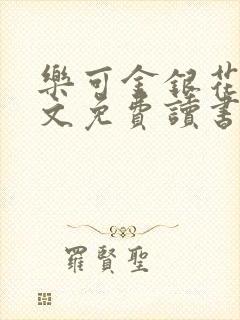 樂可金銀花
文免費讀書
羅賢聖